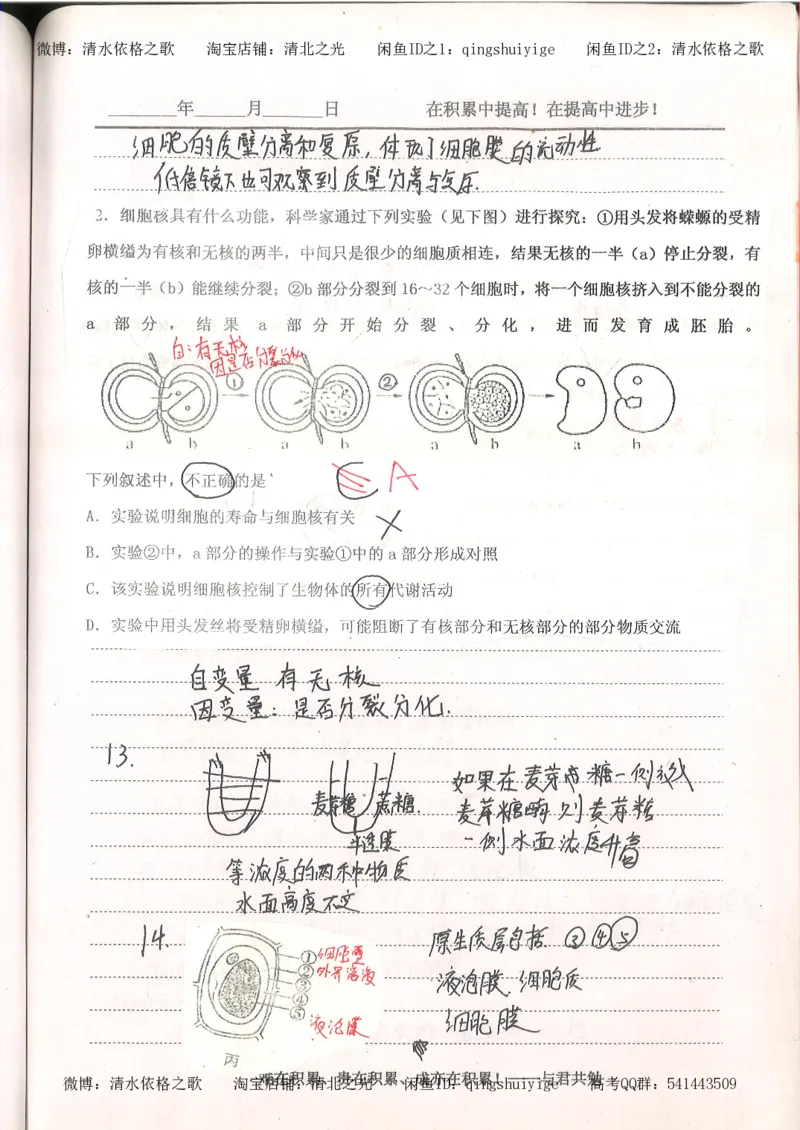 微博：清水依格之歌 淘宝店铺：清北之光 闲鱼ID之1：qingshuiyige 闲鱼ID之2：清水依格之歌
年 月 日 在积累中提高！在提高中进步！
细胞的质壁分离和复原，体现了细胞膜的流动性
低倍镜下也可观察到质壁分离与复原.
2．细胞核具有什么功能，科学家通过下列实验（见下图）进行探究：①用头发将蝾螈的受精
卵横缢为有核和无核的两半，中间只是很少的细胞质相连，结果无核的一半（a）停止分裂，有
核的一半（b）能继续分裂；②b部分分裂到16～32个细胞时，将一个细胞核挤入到不能分裂的
a部分，结果a部分开始分裂、分化，进而发育成胚胎。
自：有无核
因是否分裂分化
① ②
a b a b a b a b
下列叙述中，不正确的是
C A
A．实验说明细胞的寿命与细胞核有关
B．实验②中，a部分的操作与实验①中的a部分形成对照
C．该实验说明细胞核控制了生物体的所有代谢活动
D．实验中用头发丝将受精卵横缢，可能阻断了有核部分和无核部分的部分物质交流
自变量 有无核
因变量：是否分裂分化.
13.
麦芽糖 蔗糖.
半透膜
等浓度的两种物质
水面高度不变
如果在麦芽糖一侧
麦芽糖酶则麦芽糖
一侧水面浓度升高
14.
①细胞壁
②外界溶液
③
④
⑤
液泡膜
丙
原生质层包括 ③④⑤
液泡膜．细胞质
细胞膜
难在积累，贵在积累，成亦在积累！——与君共勉
微博：清水依格之歌 淘宝店铺：清北之光 闲鱼ID：qingshuiyige 高考QQ群：541443509